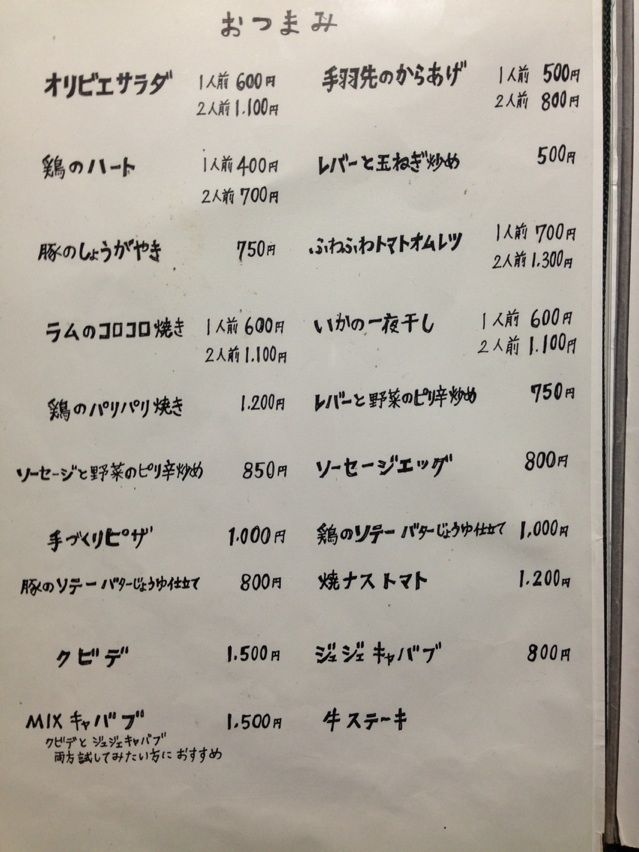 おつまみ
オリビエサラダ 1人前 600円
2人前 1.100円
鶏のハート 1人前 400円
2人前 700円
豚のしょうがやき 750円
ラムのコロコロ焼き 1人前 600円
2人前 1.100円
鶏のパリパリ焼き 1.200円
ソーセージと野菜のピリ辛炒め 850円
手づくりピザ 1.000円
豚のソテー バターじょうゆ仕立て 800円
クビデ 1.500円
MIX キャバブ 1.500円
クビデと ジュジェキャバブ
両方試してみたい方に おすすめ
手羽先のからあげ 1人前 500円
2人前 800円
レバーと玉ねぎ炒め 500円
ふわふわトマトオムレツ 1人前 700円
2人前 1.300円
いかの一夜干し 1人前 600円
2人前 1.100円
レバーと野菜のピリ辛炒め 750円
ソーセージエッグ 800円
鶏のソテー バターじょうゆ仕立て 1,000円
焼ナス トマト 1.200円
ジュジェ キャバブ 800円
牛ステーキ